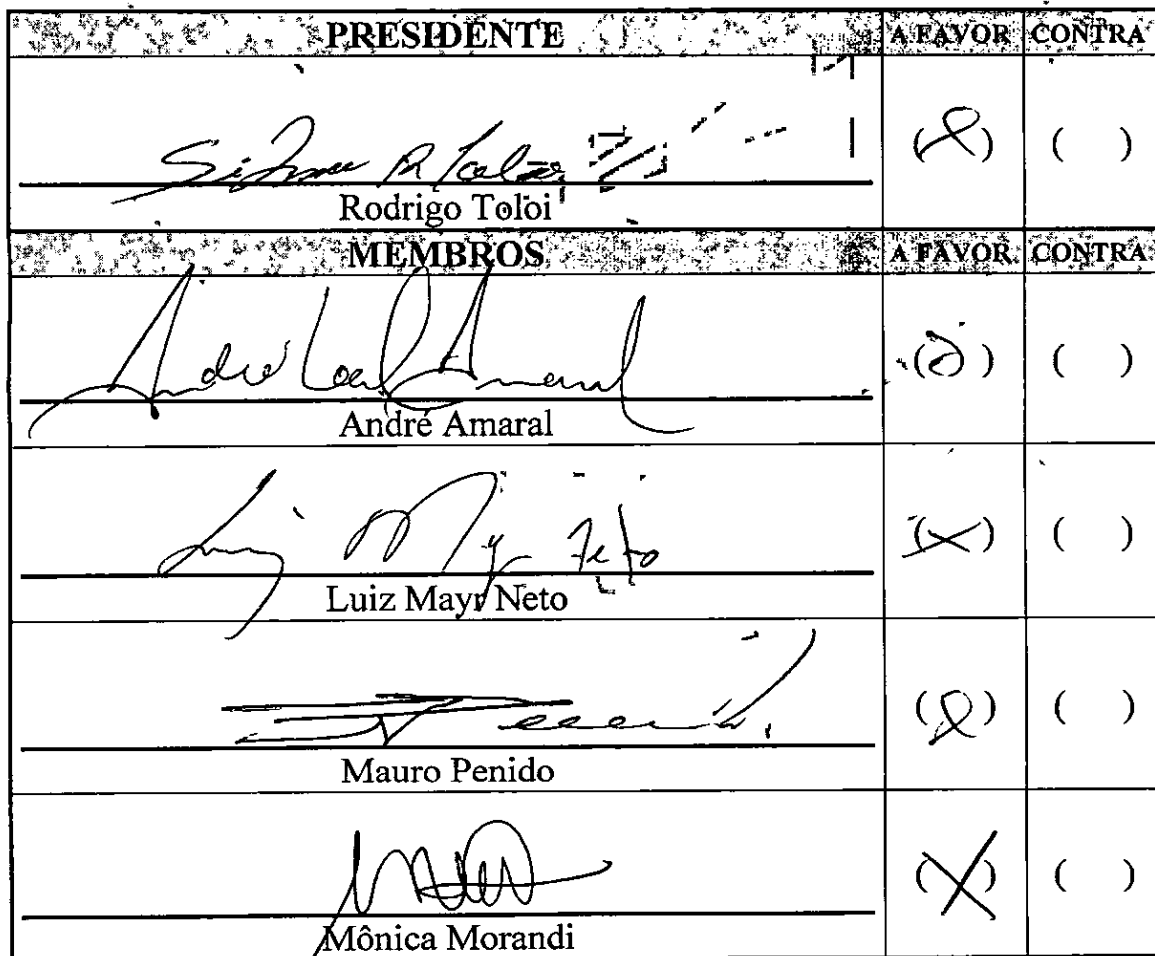 PRESIDENTE A FAVOR CONTRA
( ) ( )
Rodrigo Toloi
MEMBROS A FAVOR CONTRA
André Amaral ( ) ( )
André Amaral
Luiz Neto (X) ( )
Luiz Mayr Neto
( ) ( )
Mauro Penido
(X) ( )
Mônica Morandi